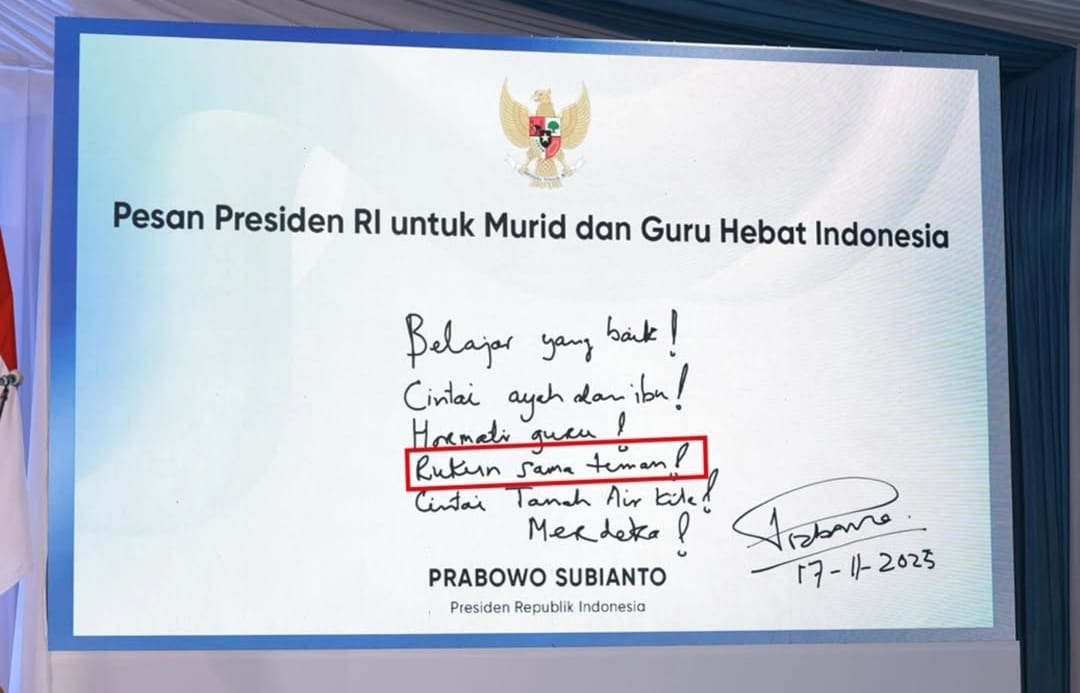 Pesan Presiden RI untuk Murid dan Guru Hebat Indonesia
Belajar yang baik!
Cintai ayah dan ibu!
Hormati guru!
Rukun sama teman!
Cintai Tanah Air kita!
Merdeka!
PRABOWO SUBIANTO
Presiden Republik Indonesia
Prabowo.
17-11-2025